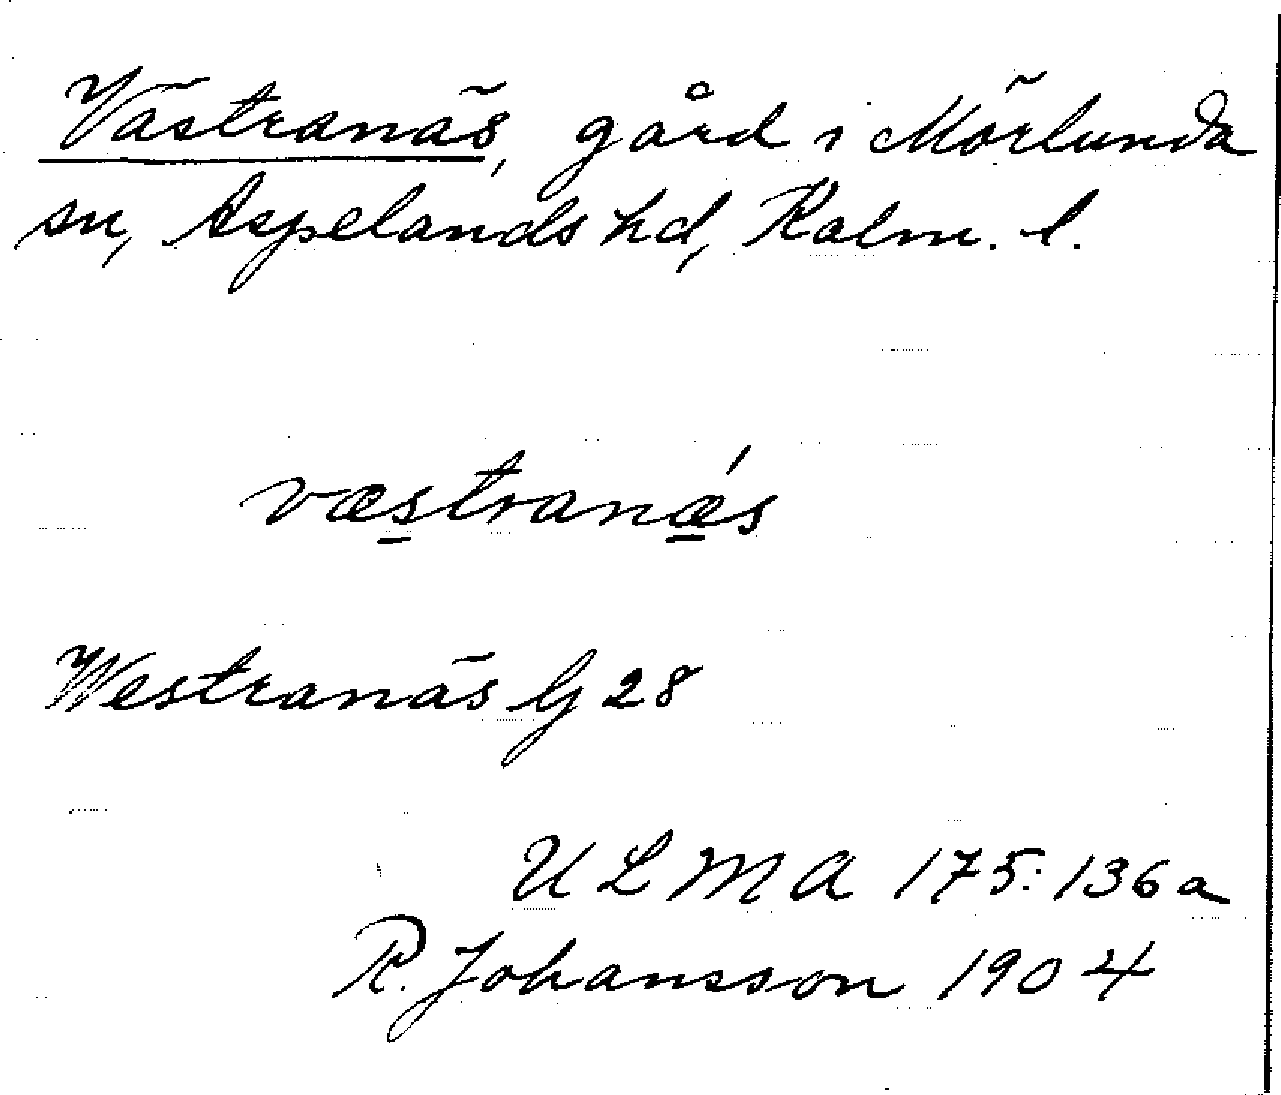 Västranäs, gård i Mörlunda
sn, Aspelands hd, Kalm. l.
væstranǽs
Westranäs G 28
ULMA 175:136a
R. Johansson 1904